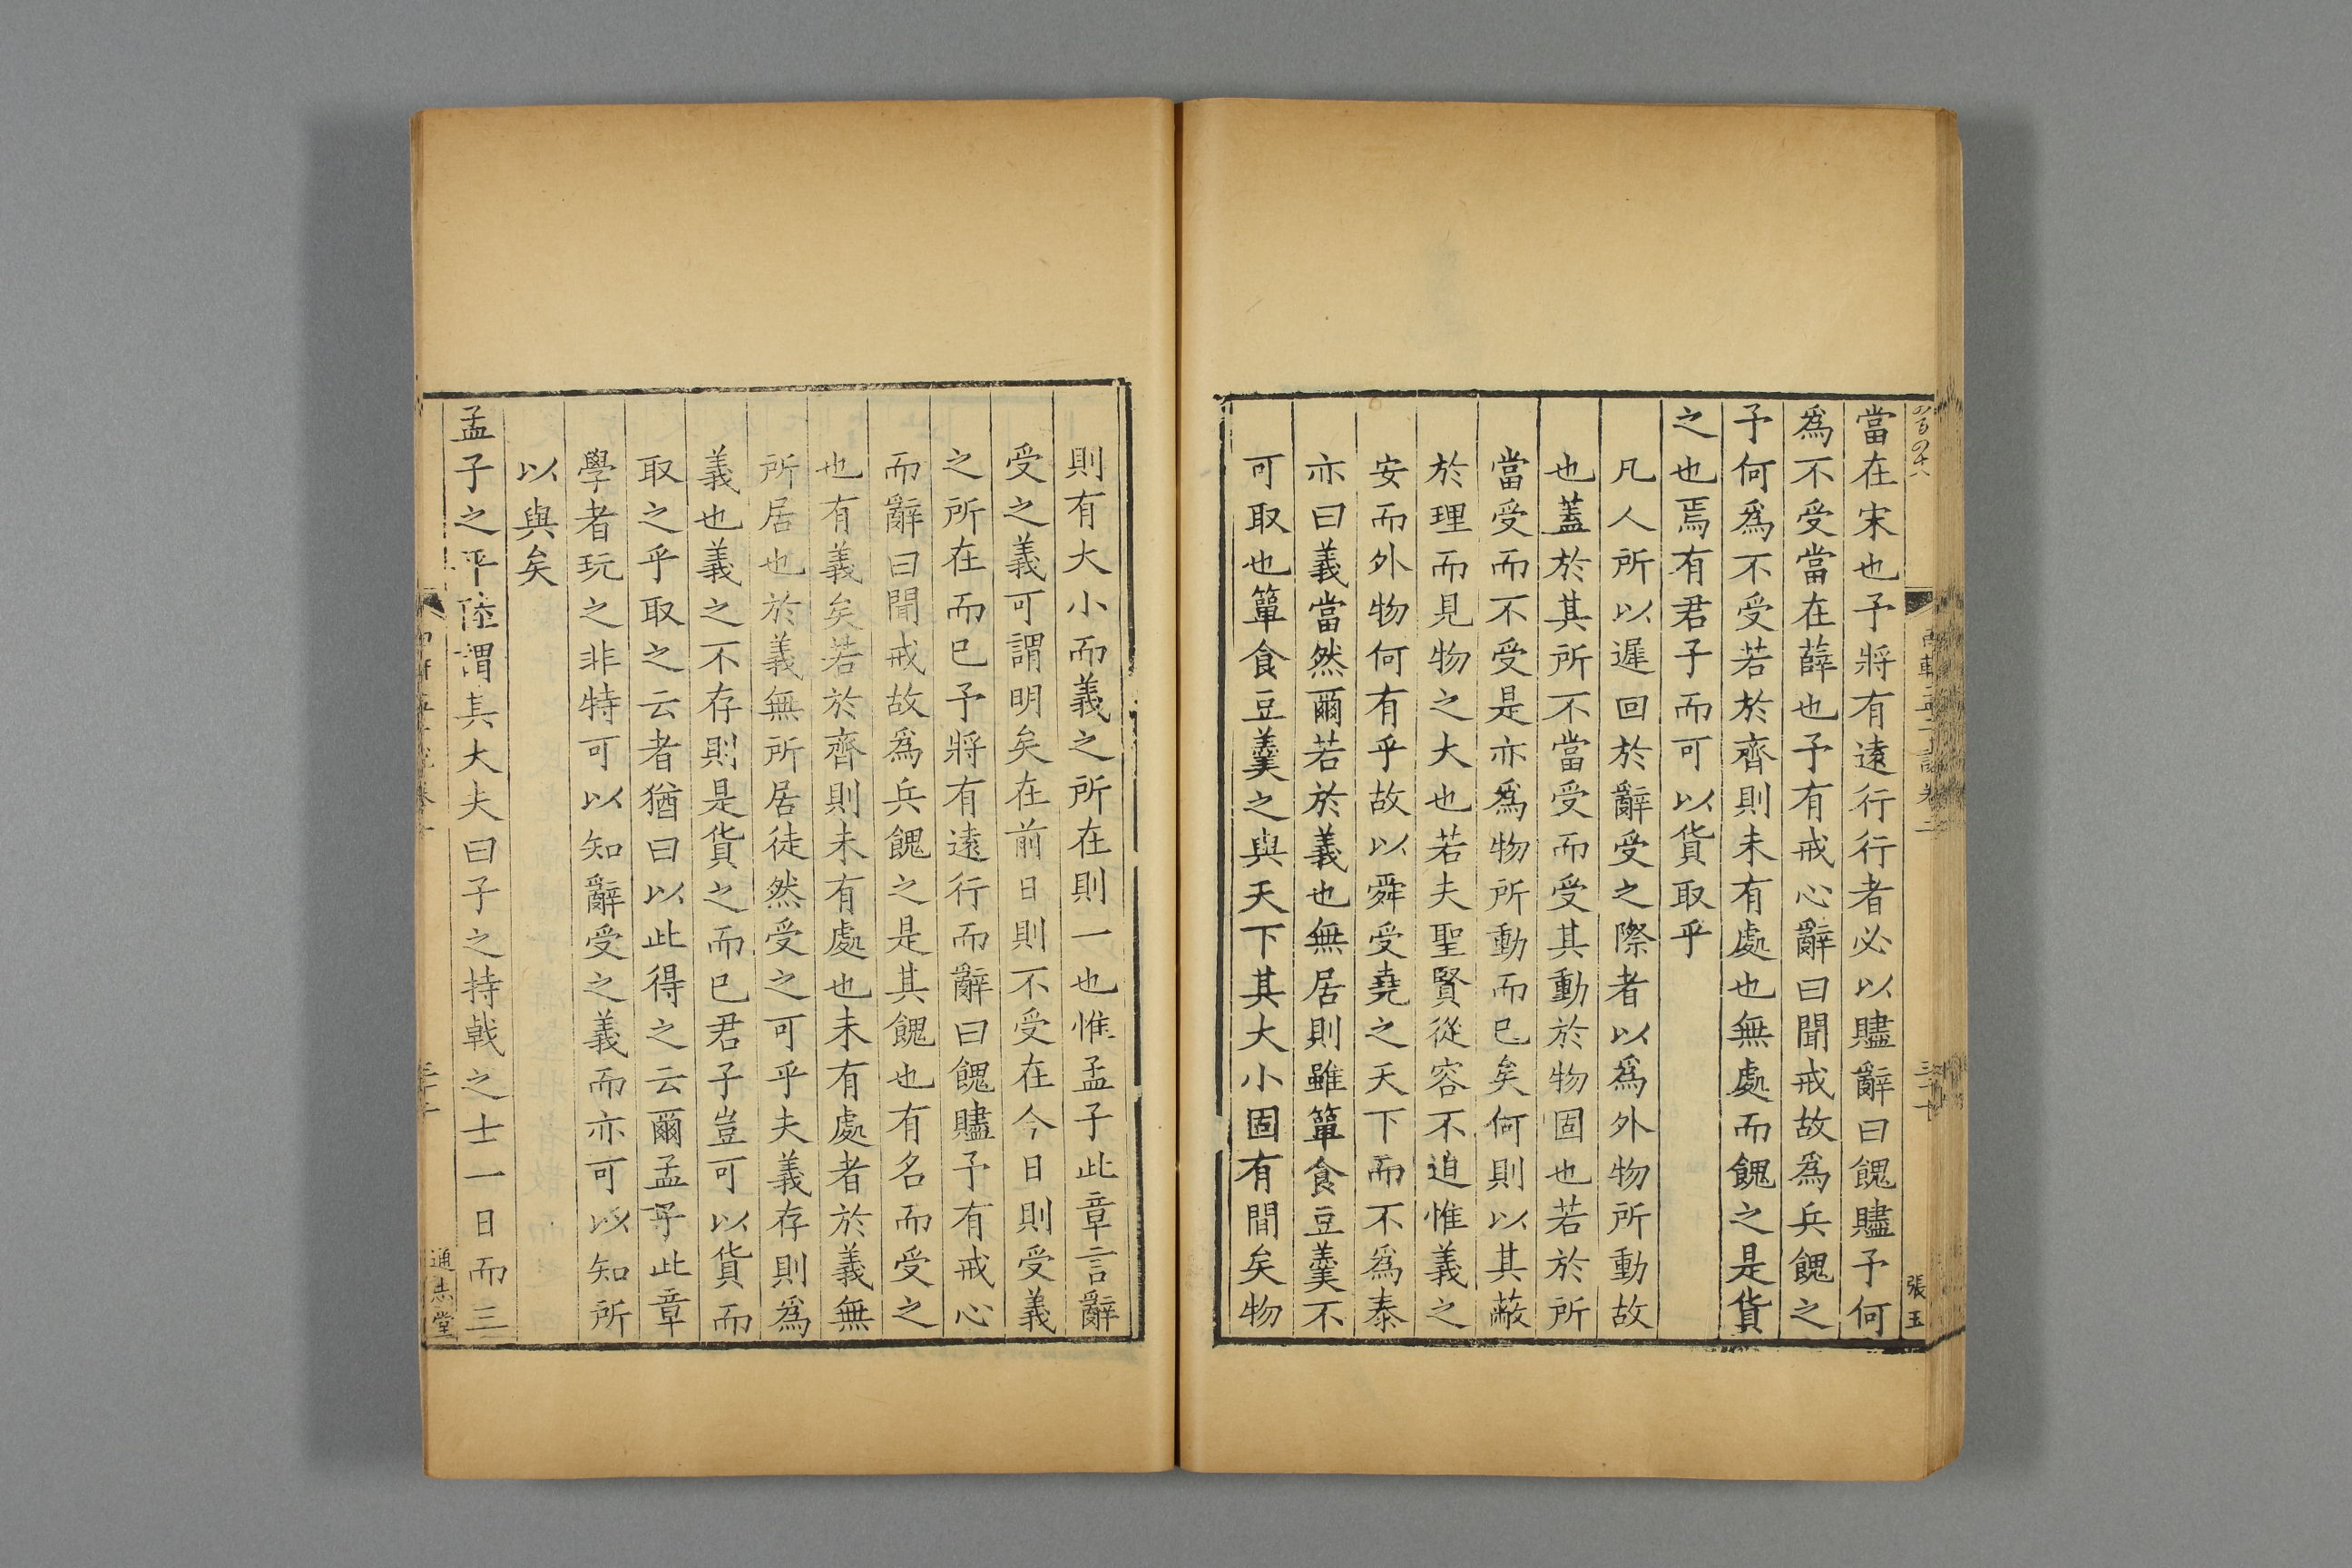 當在宋也予將有遠行行者必以贐辭曰餽贐予何
爲不受當在薛也予有戒心辭曰聞戒故爲兵餽之
予何爲不受若於齊則未有處也無處而餽之是貨
之也焉有君子而可以貨取乎
凡人所以遲回於辭受之際者以爲外物所動故
也蓋於其所不當受而受其動於物固也若於所
當受而不受是亦爲物所動而已矣何則以其蔽
於理而見物之大也若夫聖賢從容不迫惟義之
安而外物何有乎故以舜受堯之天下而不爲泰
亦曰義當然爾若於義也無居則雖簞食豆羹不
可取也簞食豆羹之與天下其大小固有間矣物
張玉
則有大小而義之所在則一也惟孟子此章言辭
受之義可謂明矣在前日則不受在今日則受義
之所在而已予將有遠行而辭曰餽贐予有戒心
而辭曰聞戒故爲兵餽之是其餽也有名而受之
也有義矣若於齊則未有處也未有處者於義無
所居也於義無所居徒然受之可乎夫義存則爲
義也義之不存則是貨之而已君子豈可以貨而
取之乎取之云者猶曰以此得之云爾孟子此章
學者玩之非特可以知辭受之義而亦可以知所
以與矣
孟子之平陸謂其大夫曰子之持戟之士一日而三
通志堂